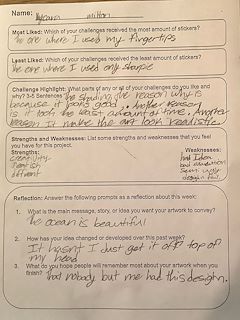 Name:
Most Liked: Which of your challenges received the most amount of stickers?
The one where I used my fingertips
Least Liked: Which of your challenges received the least amount of stickers?
The one where I used only sharpe
Challenge Highlight: What parts of any or all of your challenges do you like and
why? 3-5 Sentences The shading the reason why is
because it looks good, Another reason
is it took the least amount of time. Another
reason It make the art look realistic
Strengths and Weaknesses: List some strengths and weaknesses that you feel
you have for this project.
Strengths:
Weaknesses:
creativity
bad Idea
realistic
bad
different
Reflection: Answer the following prompts as a reflection about this week:
1. What is the main message, story, or idea you want your artwork to convey?
The ocean is beautiful
2. How has your idea changed or developed over the past week?
It hasn't I just got it off top of
my head
3. What do you hope people will remember most about your artwork when you
finish?
That nobody but me had this desighn.